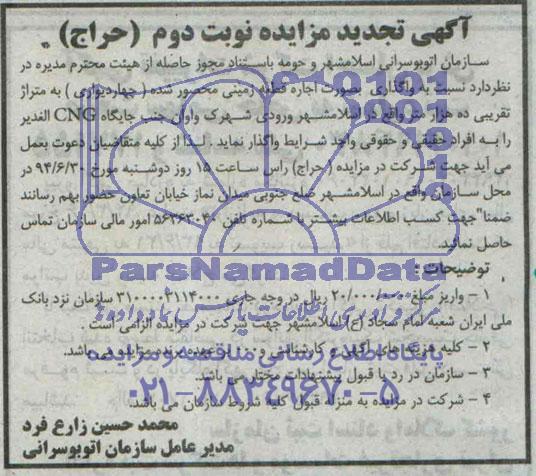 آگهی تجدید مزایده نوبت دوم (حراج)
سازمان اتوبوسرانی اسلامشهر و حومه باستناد مجوز حاصله از هیئت محترم مدیره در
نظردارد نسبت به واگذاری بصورت اجاره قطعه زمینی محصور شده (چهاردیواری) به متراژ
تقریبی ده هزار متر واقع در اسلامشهر ورودی شهرک واوان جنب جایگاه CNG الغدیر
را به افراد حقیقی و حقوقی واجد شرایط واگذار نماید. لذا از کلیه متقاضیان دعوت بعمل
می آید جهت شرکت در مزایده (حراج) راس ساعت ۱۵ روز دوشنبه مورخ ۹۴/۶/۳۰ در
محل سازمان واقع در اسلامشهر ضلع جنوبی میدان نماز خیابان تعاون حضور بهم رسانند
ضمنا" جهت کسب اطلاعات بیشتر با شماره تلفن ۵۶۳۶۳۰۴۰ امور مالی سازمان تماس
حاصل نمائید.
توضیحات:
۱ - واریز مبلغ ۲۰/۰۰۰/۰۰۰ ریال در وجه جاری ۳۱۰۰۰۰۳۱۱۴۰۰۰ سازمان نزد بانک
ملی ایران شعبه امام سجاد (ع) اسلامشهر جهت شرکت در مزایده الزامی است.
۲ - کلیه هزینه های آگهی و کارشناسی و ... به عهده برنده مزایده می باشد.
۳ - سازمان در رد یا قبول پیشنهادات مختار می باشد.
۴ - شرکت در مزایده به منزله قبول کلیه شروط سازمان می باشد.
محمد حسین زارع فرد
مدیر عامل سازمان اتوبوسرانی
ParsNamadData
مرکز فرآوری اطلاعات پارس نماد داده ها
پایگاه اطلاع رسانی مناقصه و مزایده
۰۲۱-۸۸۳۴۹۶۷۰-۵